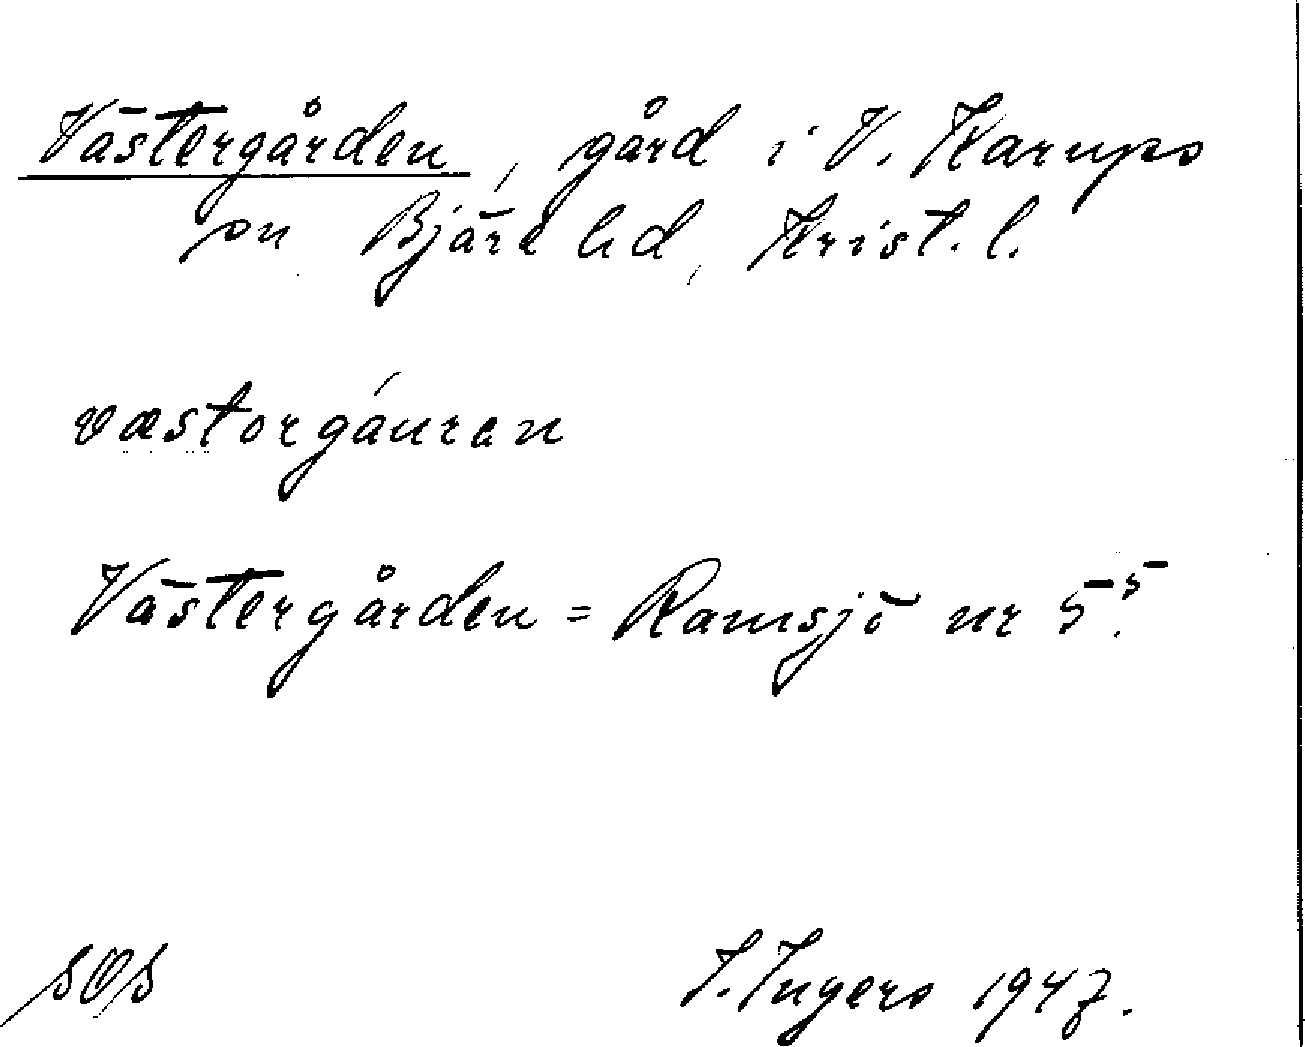 Västergården, gård i V. Karups
sn Bjäre hd, Krist. l.
væstorgáuren
Västergården = Ramsjö nr 5⁵.
I. Ingers 1947.